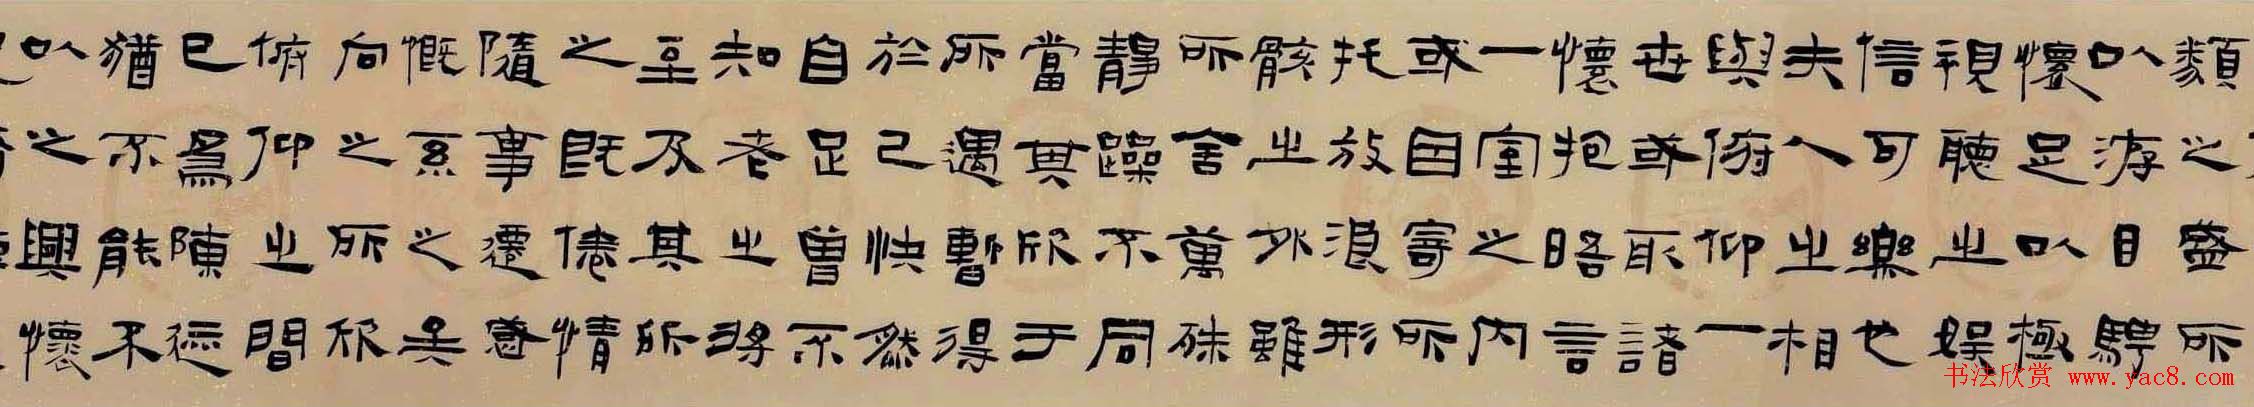 類之盛所
以游目騁
懷足以極
視聽之娛
信可樂也
夫人之相
與俯仰一
世或取諸
懷抱晤言
一室之內
或自寄所
托放浪形
骸之外雖
所舍萬殊
靜躁不同
當其欣于
所遇暫得
於己快然
自足曾不
知老之將
至及其所
之既倦情
隨事遷感
慨系之矣
向之所欣
俯仰之間
已爲陳迹
猶不能不
以之興懷
书法欣赏 www.yac8.com